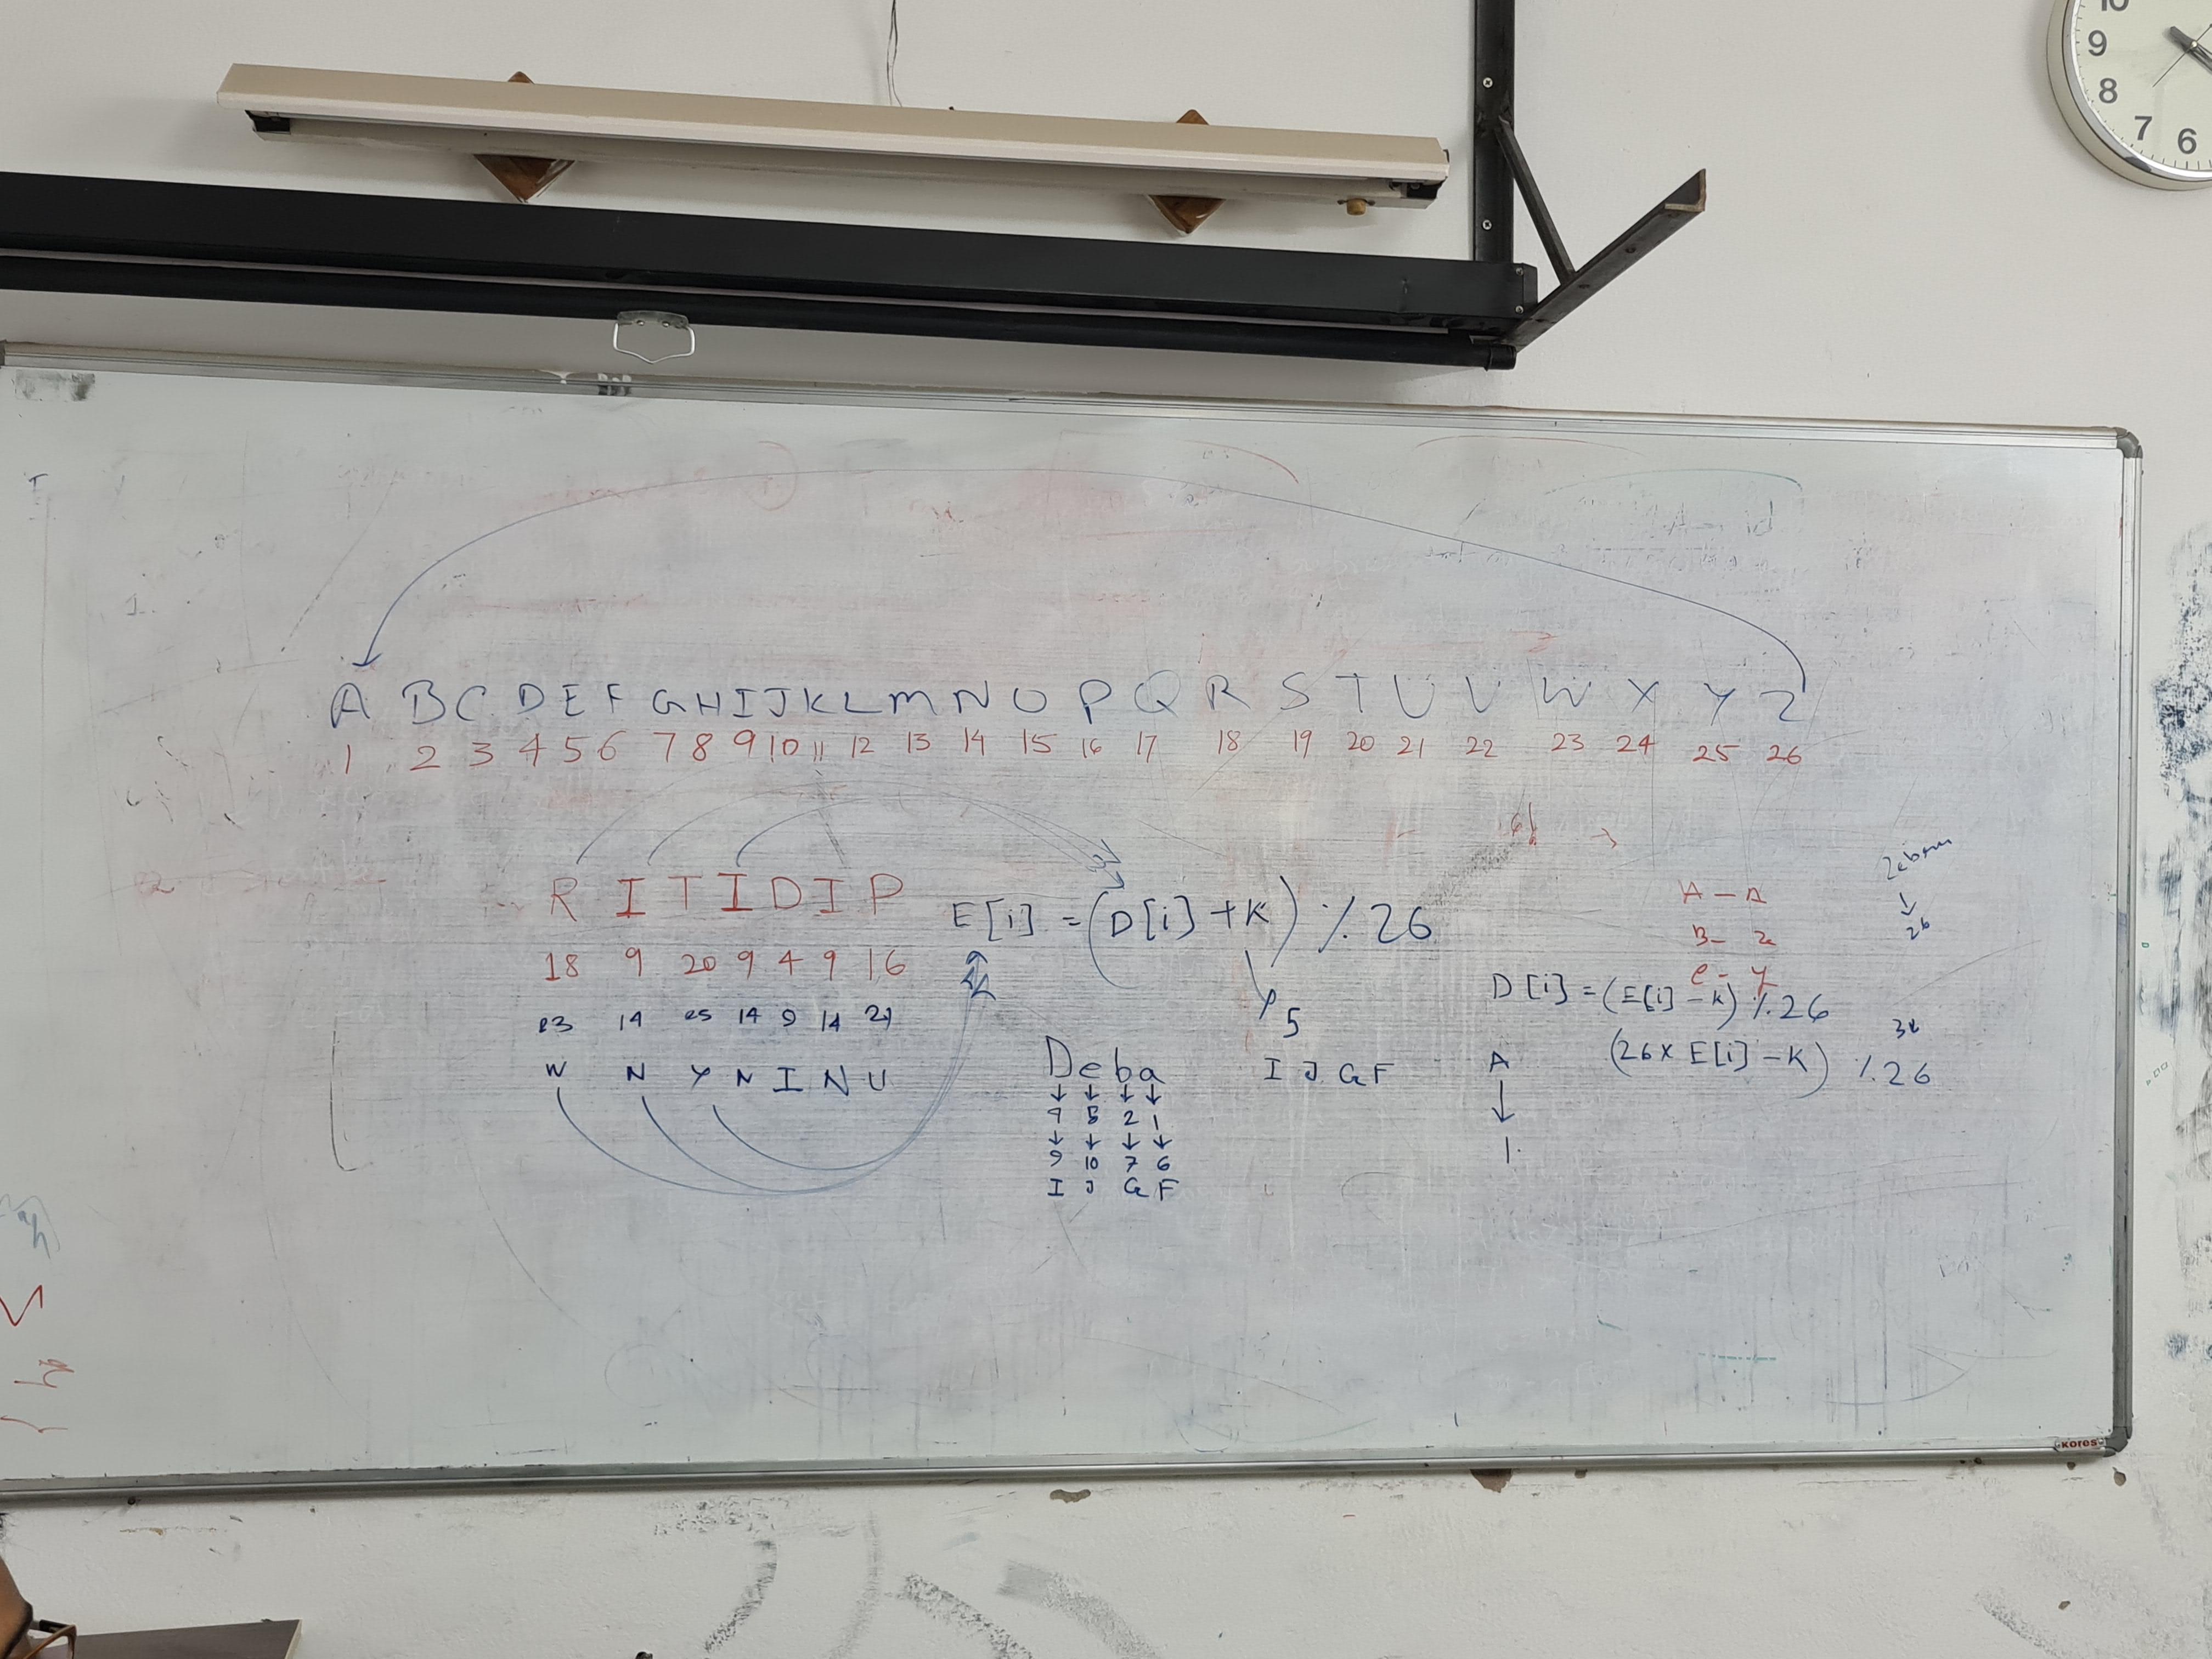 A B C D E F G H I J K L M N O P Q R S T U V W X Y Z
1 2 3 4 5 6 7 8 9 10 11 12 13 14 15 16 17 18 19 20 21 22 23 24 25 26
R I T I D I P
18 9 20 9 4 9 16
23 14 25 14 9 14 21
W N Y N I N U
E[i] = (D[i] + K) % 26
5
I J G F
Deba
4 5 2 1
9 10 7 6
I J G F
A -
B -
D[i] = (E[i] - K) % 26
(26 x E[i] - K) % 26
A
1
26
kores
10
9
8
7 6